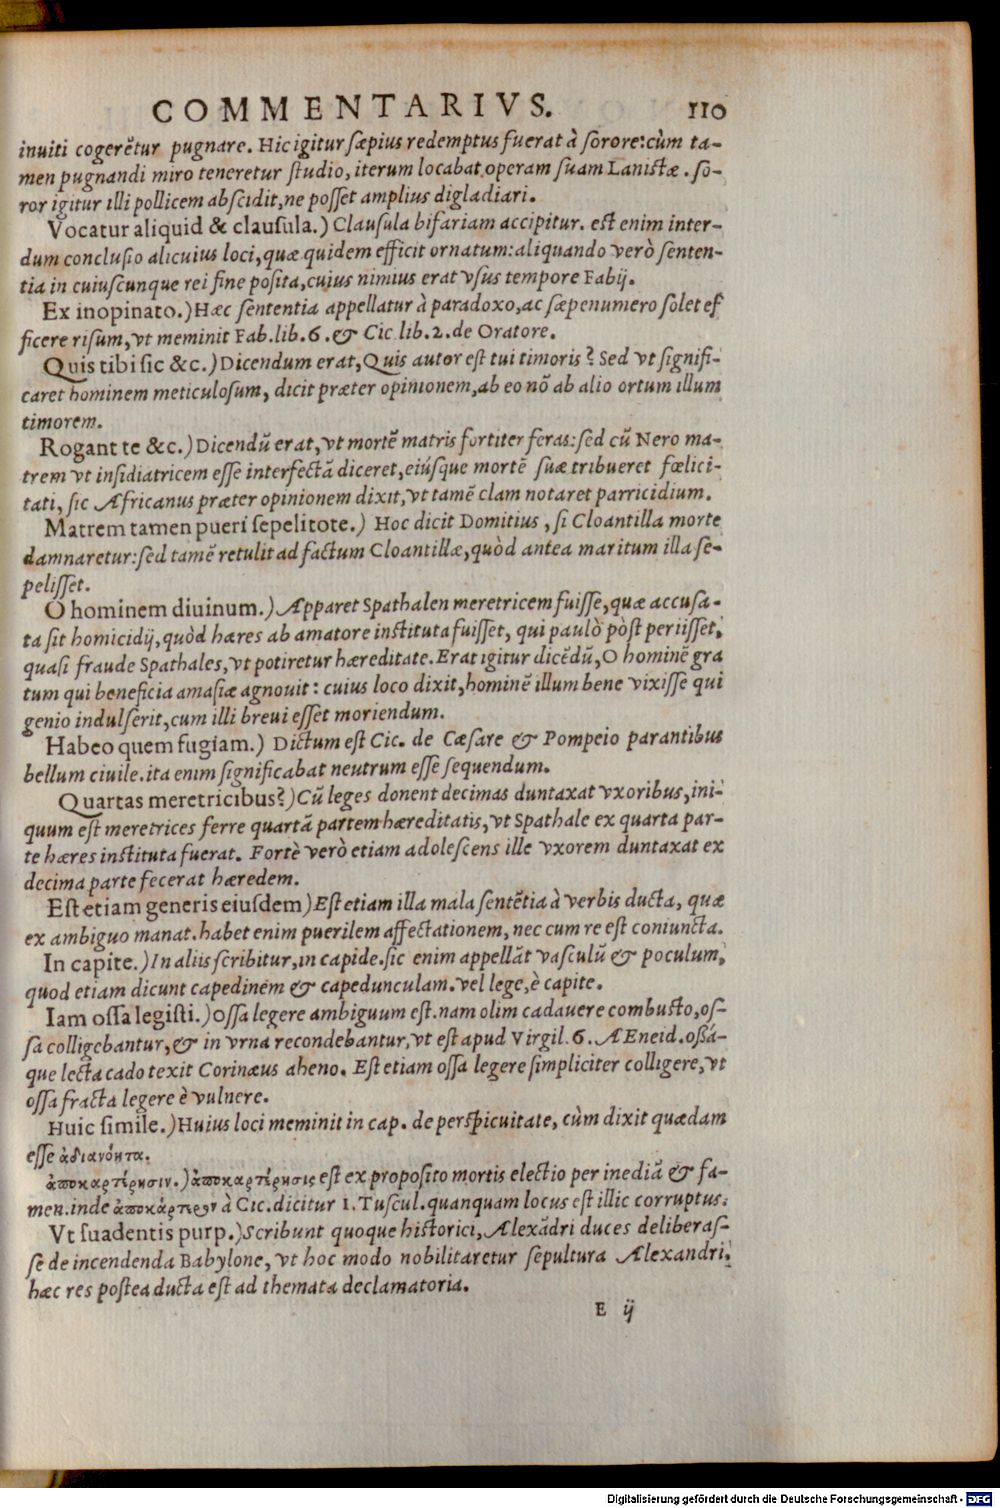 COMMENTARIVS. 110
inuiti cogerẽtur pugnare. Hic igitur sæpius redemptus fuerat à sorore: cùm ta-
men pugnandi miro teneretur studio, iterum locabat operam suam Lanistæ. so-
ror igitur illi pollicem abscidit, ne posset amplius digladiari.
Vocatur aliquid & clausula.) Clausula bifariam accipitur. est enim inter-
dum conclusio alicuius loci, quæ quidem efficit ornatum: aliquando verò senten-
tia in cuiuscunque rei fine posita, cuius nimius erat vsus tempore Fabij.
Ex inopinato.) Hæc sententia appellatur à paradoxo, ac sæpenumero solet ef
ficere risum, vt meminit Fab. lib. 6. & Cic lib. 2. de Oratore.
Quis tibi sic &c.) Dicendum erat, Quis autor est tui timoris? Sed vt signifi-
caret hominem meticulosum, dicit præter opinionem, ab eo nõ ab alio ortum illum
timorem.
Rogant te &c.) Dicendũ erat, vt mortẽ matris fortiter feras: sed cũ Nero ma-
trem vt insidiatricem esse interfectã diceret, eiúsque mortẽ suæ tribueret fœlici-
tati, sic Africanus præter opinionem dixit, vt tamẽ clam notaret parricidium.
Matrem tamen pueri sepelitote.) Hoc dicit Domitius, si Cloantilla morte
damnaretur: sed tamẽ retulit ad factum Cloantillæ, quòd antea maritum illa se-
pelisset.
O hominem diuinum.) Apparet Spathalen meretricem fuisse, quæ accusa-
ta sit homicidij, quòd hæres ab amatore instituta fuisset, qui paulò pòst periisset,
quasi fraude Spathales, vt potiretur hæreditate. Erat igitur dicẽdũ, O hominẽ gra
tum qui beneficia amasiæ agnouit: cuius loco dixit, hominẽ illum bene vixisse qui
genio indulserit, cum illi breui esset moriendum.
Habeo quem fugiam.) Dictum est Cic. de Cæsare & Pompeio parantibus
bellum ciuile. ita enim significabat neutrum esse sequendum.
Quartas meretricibus?) Cũ leges donent decimas duntaxat vxoribus, ini-
quum est meretrices ferre quartã partem hæreditatis, vt Spathale ex quarta par-
te hæres instituta fuerat. Fortè verò etiam adolescens ille vxorem duntaxat ex
decima parte fecerat hæredem.
Est etiam generis eiusdem) Est etiam illa mala sentẽtia à verbis ducta, quæ
ex ambiguo manat. habet enim puerilem affectationem, nec cum re est coniuncta.
In capite.) In aliis scribitur, in capide. sic enim appellãt vasculũ & poculum,
quod etiam dicunt capedinem & capedunculam. vel lege, è capite.
Iam ossa legisti.) Ossa legere ambiguum est. nam olim cadauere combusto, os-
sa colligebantur, & in vrna recondebantur, vt est apud Virgil. 6. AEneid. ossá-
que lecta cado texit Corinæus aheno. Est etiam ossa legere simpliciter colligere, vt
ossa fracta legere è vulnere.
Huic simile.) Huius loci meminit in cap. de perspicuitate, cùm dixit quædam
esse ἀδιανόητα.
ἀποκαρτέρησιν.) ἀποκαρτέρησις est ex proposito mortis electio per inediã & fa-
men. inde ἀποκάρτερων à Cic. dicitur 1. Tuscul. quanquam locus est illic corruptus.
Vt suadentis purp.) Scribunt quoque historici, Alexãdri duces deliberas-
se de incendenda Babylone, vt hoc modo nobilitaretur sepultura Alexandri.
hæc res postea ducta est ad themata declamatoria.
E ij
Digitalisierung gefördert durch die Deutsche Forschungsgemeinschaft - DFG